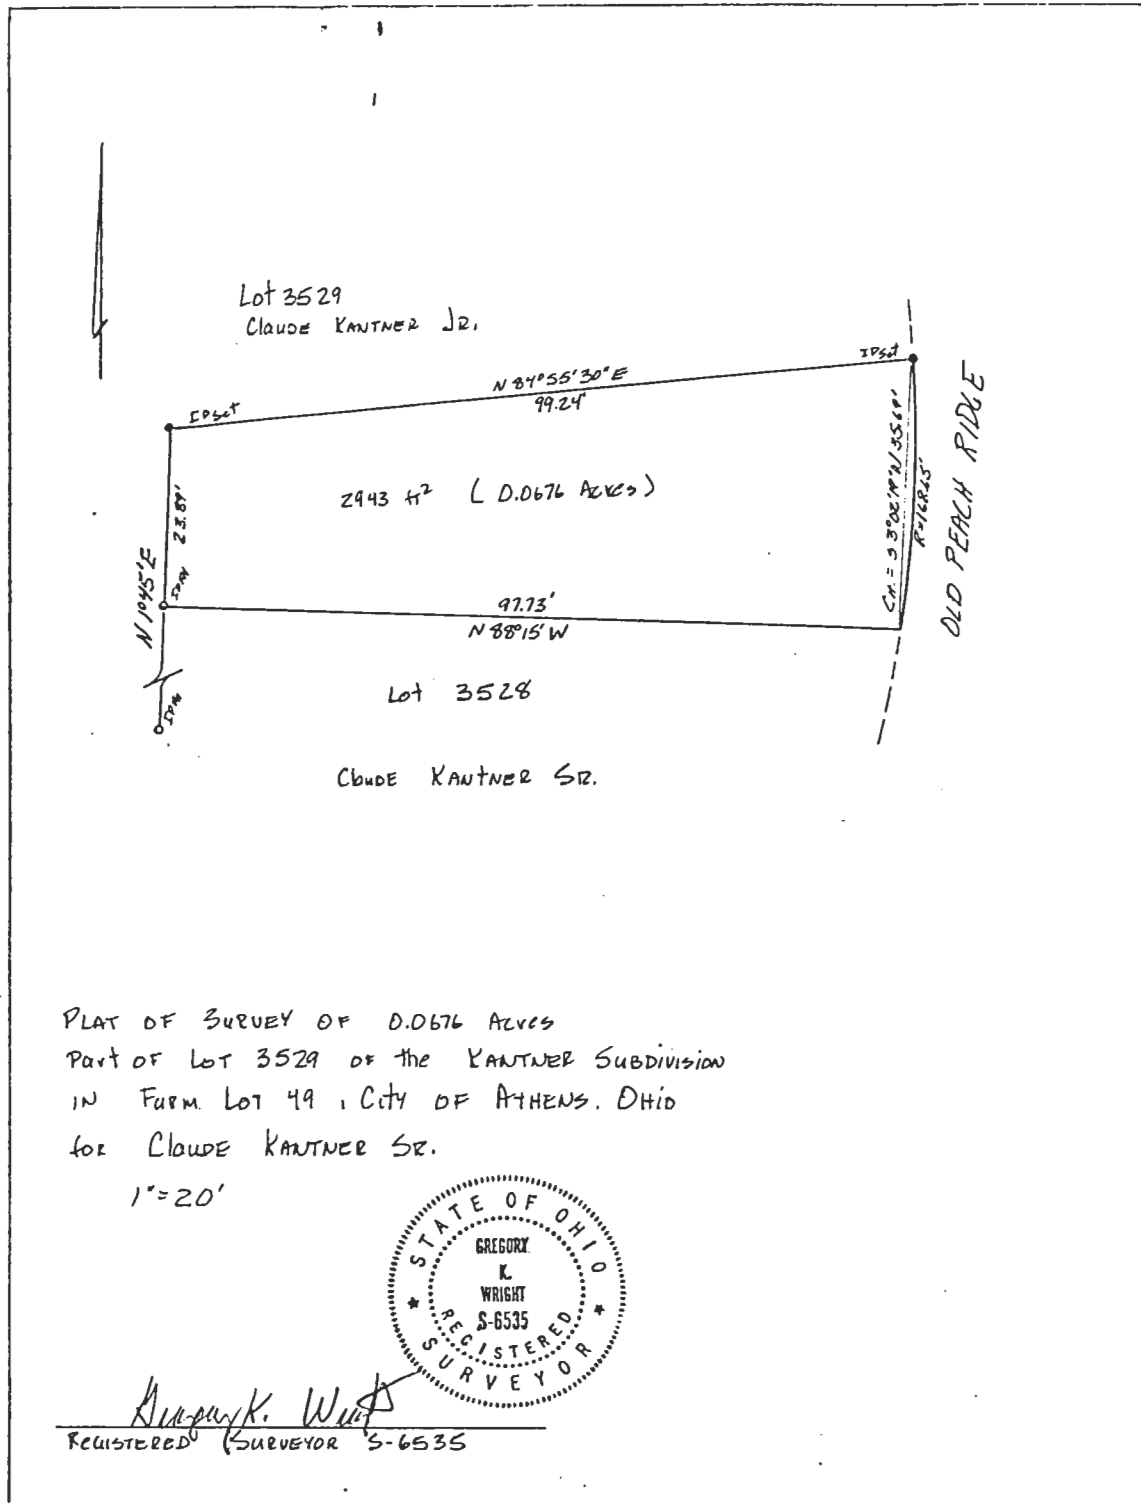 Lot 3529
Claude Kantner Jr.
IP Set
N 84°55'30" E
99.24'
IP Set
2943 ft² (0.0676 Acres)
23.89'
N 1°45' E
97.73'
N 88°15' W
R=168.65'
OLD PEACH RIDGE
Lot 3528
Claude Kantner Sr.
Plat of Survey of 0.0676 Acres
Part of Lot 3529 of the Kantner Subdivision
in Farm Lot 49, City of Athens, Ohio
for Claude Kantner Sr.
1"=20'
STATE OF OHIO
GREGORY
K.
WRIGHT
S-6535
REGISTERED
SURVEYOR
Gregory K. Wright
Registered Surveyor S-6535